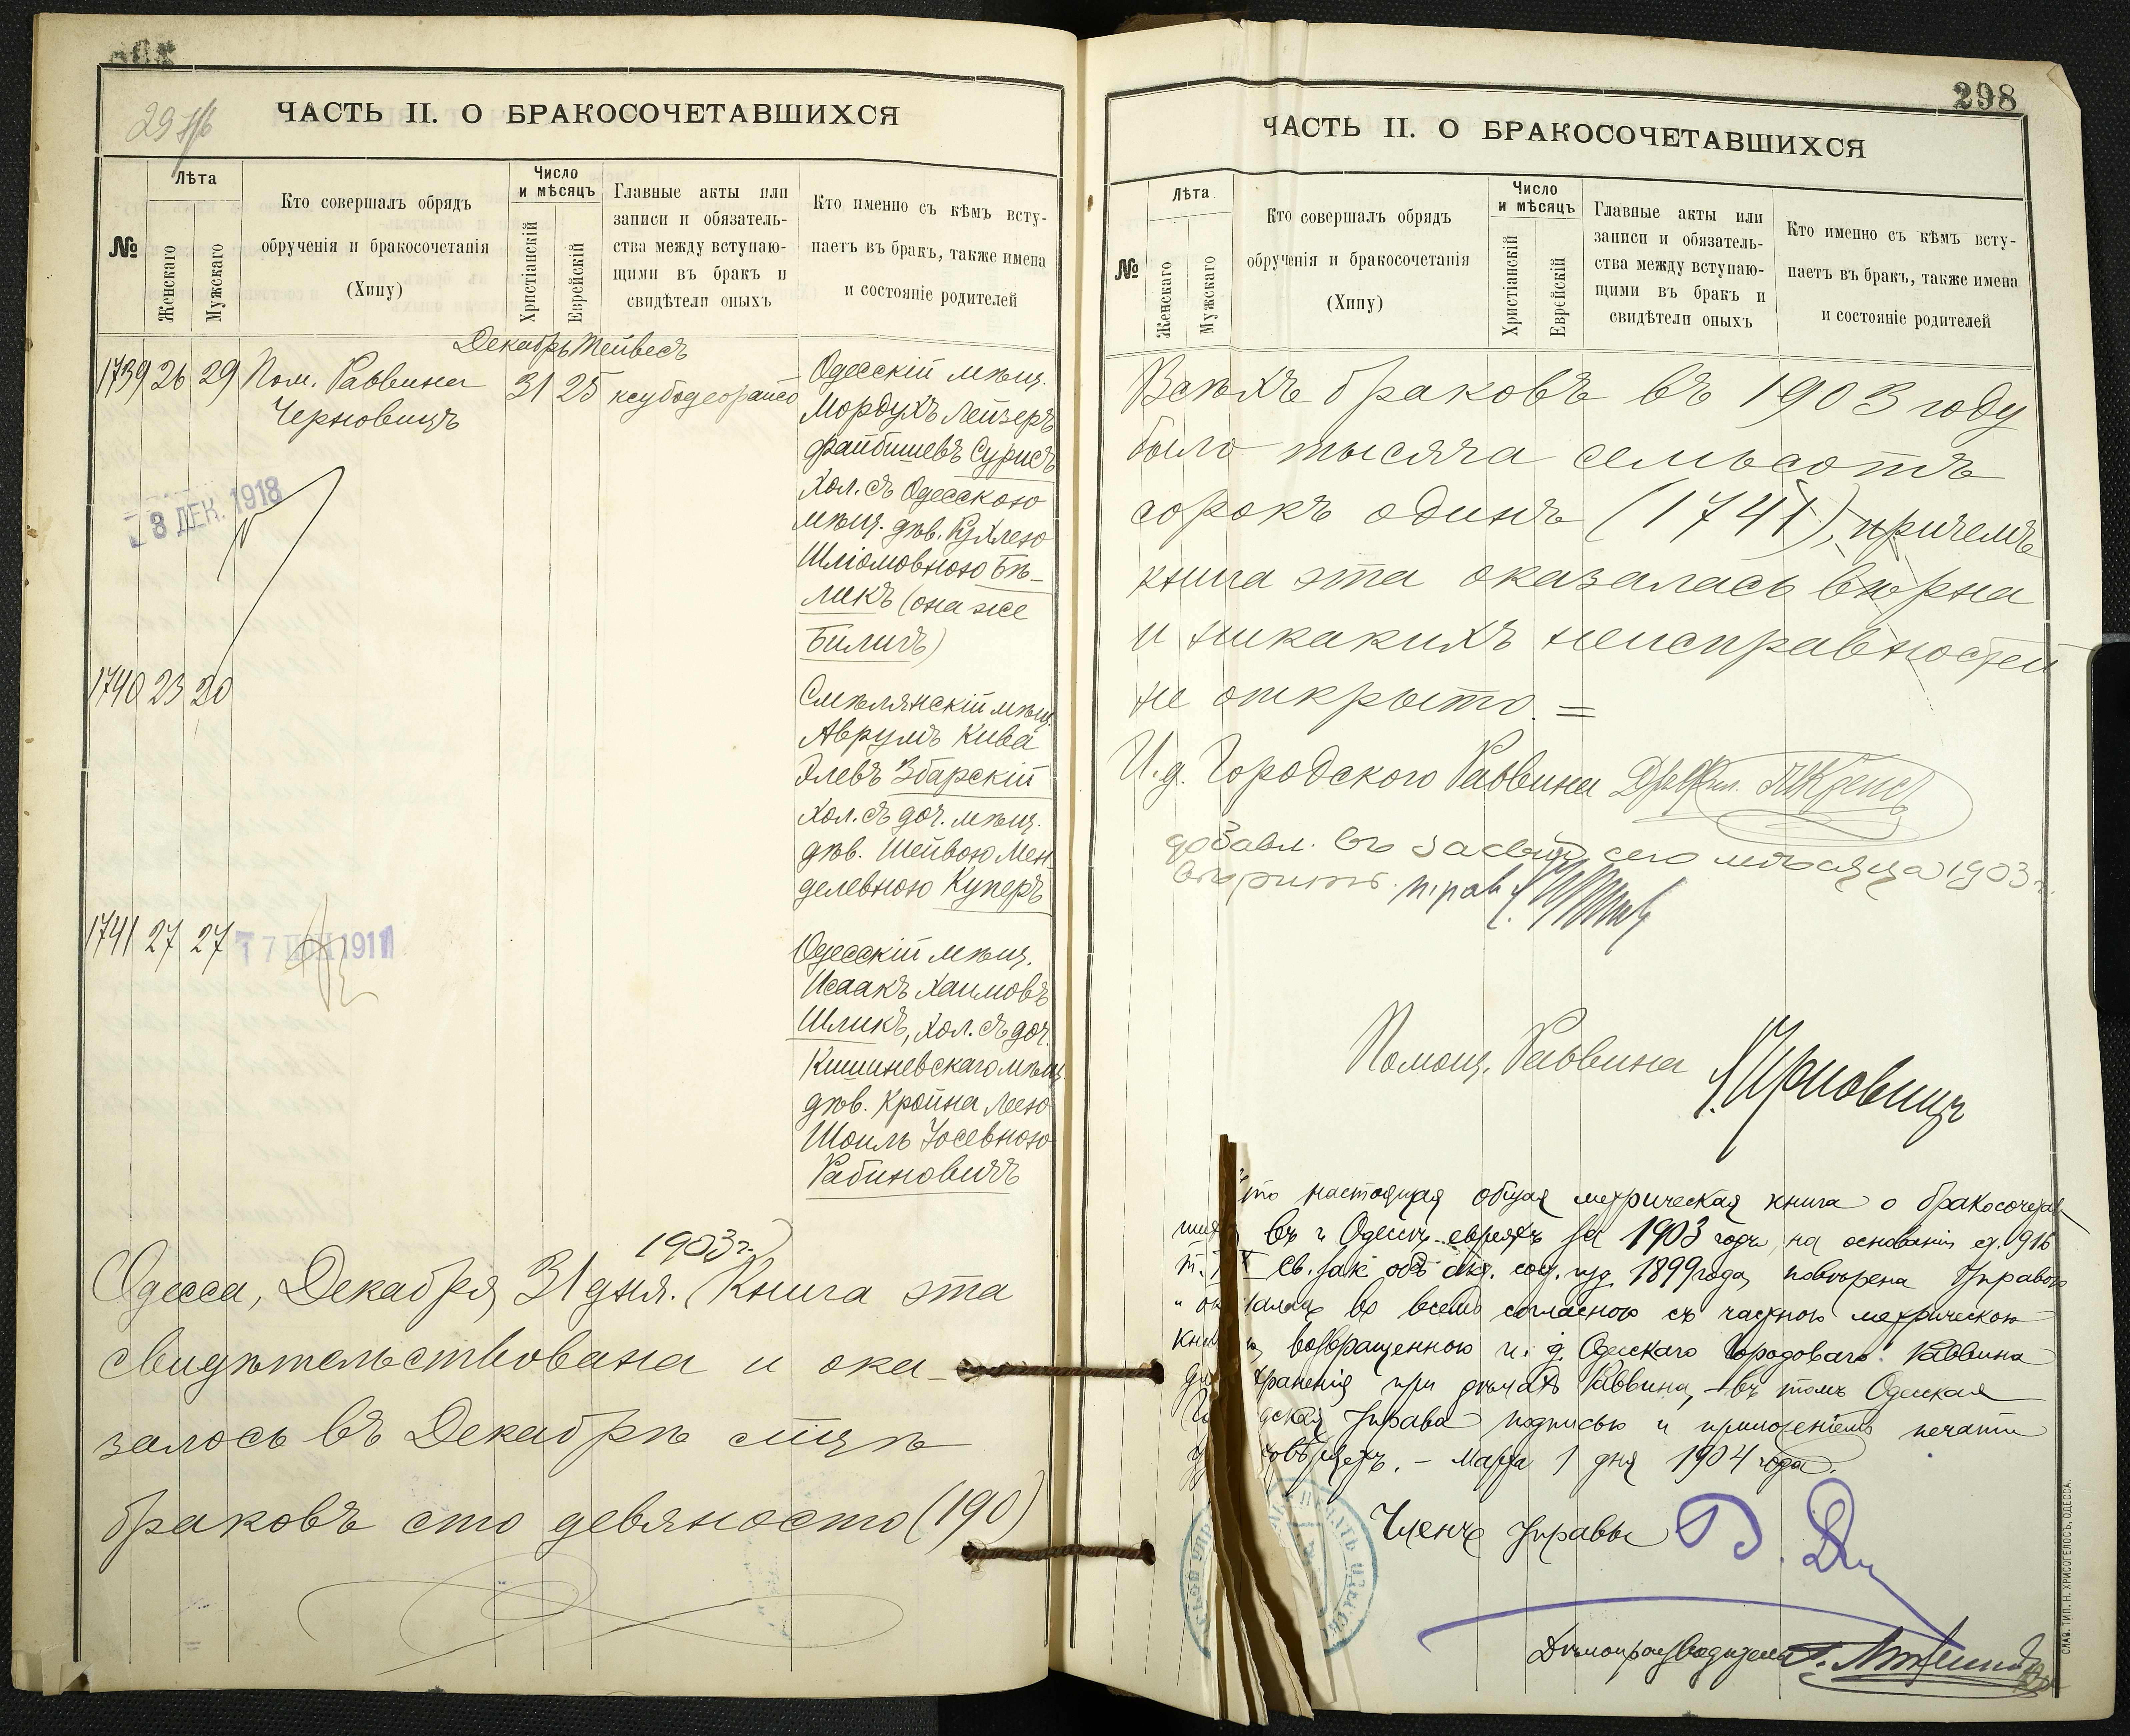 ЧАСТЬ II. О БРАКОСОЧЕТАВШИХСЯ
№
Лѣта
Женскаго
Мужскаго
Кто совершалъ обрядъ
обрученія и бракосочетанія
(Хипу)
Число
и мѣсяцъ
Христіанскій
Еврейскій
Главные акты или
записи и обязатель-
ства между вступаю-
щими въ бракъ и
свидѣтели оныхъ
Кто именно съ кѣмъ всту-
паетъ въ бракъ, также имена
и состояніе родителей
Декабрь Тейвесъ
1739 26 29 Пом. Раввина
Черновицъ
31 25
Одесскій мѣщ.
Мордухъ Лейзеръ
Файбишевъ Сурисъ
хол. съ Одесскою
мѣщ. дѣв. Рухлею
Шліомовною Бѣ-
ликъ (она же
Биличъ)
8 ДЕК. 1918
1740 23 20
Смѣлянскій мѣщ.
Аврумъ Кива
Элевъ Збарскій
хол. съ доч. мѣщ.
дѣв. Шейвою Мен-
делевною Куперъ
1741 27 27
1911
Одесскій мѣщ.
Исаакъ Хаимовъ
Шликъ, хол. съ доч.
Кишиневскаго мѣщ.
дѣв. Кройна Леею
Шоиль Іосевною
Рабиновичъ
1903 г.
Одесса, Декабря 31 дня. Книга эта
свидѣтельствована и ока-
залось въ Декабрѣ м-цѣ
браковъ сто девяносто (190)
298
ЧАСТЬ II. О БРАКОСОЧЕТАВШИХСЯ
№
Лѣта
Женскаго
Мужскаго
Кто совершалъ обрядъ
обрученія и бракосочетанія
(Хипу)
Число
и мѣсяцъ
Христіанскій
Еврейскій
Главные акты или
записи и обязатель-
ства между вступаю-
щими въ бракъ и
свидѣтели оныхъ
Кто именно съ кѣмъ всту-
паетъ въ бракъ, также имена
и состояніе родителей
Всѣхъ браковъ въ 1903 году
было тысяча семьсотъ
сорокъ одинъ (1741), причемъ
книга эта оказалась вѣрна
и никакихъ неисправностей
не открыто. =
И. д. Городского Раввина
сего мѣсяца 1903 г.
Помощ. Раввина Черновицъ
что настоящая общая метрическая книга о бракосочетав
въ г. Одессѣ евреяхъ за 1903 годъ, на основаніи ст. 916
Св. зак. объ акт. сост. изд. 1899 года, повѣрена Управою
во всемъ согласною съ частною метрическою
возвращенною и. д. Одесскаго Городоваго Раввина
храненія при дѣлахъ Раввина, – въ томъ Одесская
Управа подписью и приложеніемъ печати
– Марта 1 дня 1904 года.
Членъ Управы
Дѣлопроизводитель
СЛАВ. ТИП. Н. ХРИСОГЕЛОСЪ, ОДЕССА.